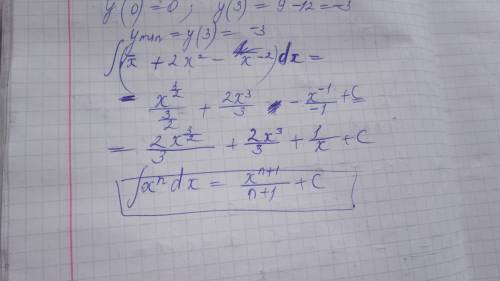 y(0)=0; y(3)=9-12=-3
y min = y(3) = -3
∫(√x + 2x² - x⁻²)dx =
= x^(3/2)/(3/2) + 2x³/3 - x⁻¹/-1 + C
= 2x^(3/2)/3 + 2x³/3 + 1/x + C
∫xⁿdx = xⁿ⁺¹/n+1 + C